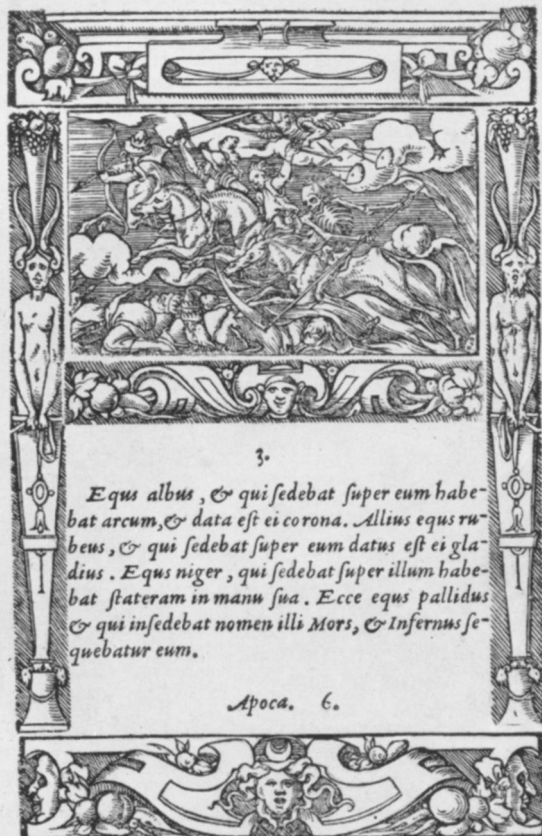 3.
Equs albus, & qui ſedebat ſuper eum habe-
bat arcum, & data eſt ei corona. Allius equs ru-
beus, & qui ſedebat ſuper eum datus eſt ei gla-
dius. Equs niger, qui ſedebat ſuper illum habe-
bat ſtateram in manu ſua. Ecce equs pallidus
& qui inſedebat nomen illi Mors, & Infernus ſe-
quebatur eum.
Apoca. 6.